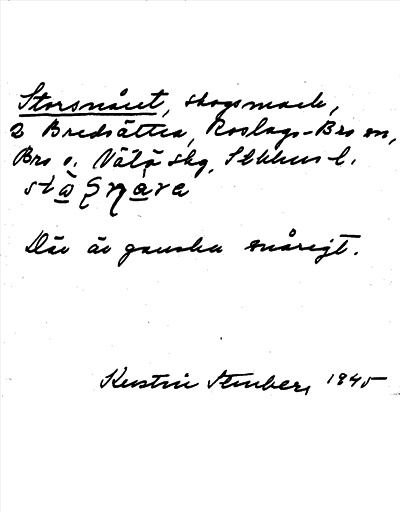 Storsnåret, skogsmark,
2 Bredsättra, Roslags-Bro sn,
Bro o. Vätö skg, Sthlms l.
Där är ganska snårigt.
Kerstin Stenberg, 1945